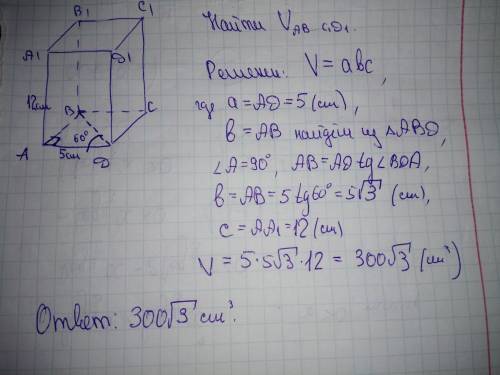 B₁ C₁
A₁ D₁
12см
B C
60°
A 5см D
Найти V_AB...C₁D₁.
Решени: V = abc,
где a = AD = 5 (cm),
b = AB найдём из △ABD,
∠A = 90°, AB = AD tg∠BDA,
b = AB = 5 tg60° = 5√3 (cm),
c = AA₁ = 12 (cm)
V = 5·5√3·12 = 300√3 (cm³)
Ответ: 300√3 cm³.